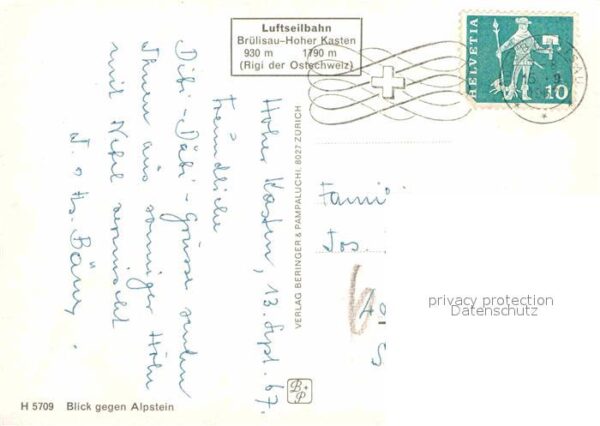 Luftseilbahn
Brülisau-Hoher Kasten
930 m 1790 m
(Rigi der Ostschweiz)
HELVETIA
10
Hoher Kasten, 13. Sept. 67.
Freundliche
Grüsse senden
Ihnen aus sonniger Höhe
mit Nebel vermischt
VERLAG BERINGER & PAMPALUCHI, 8027 ZÜRICH
Fami
Jos.
privacy protection
Datenschutz
B+P
H 5709 Blick gegen Alpstein